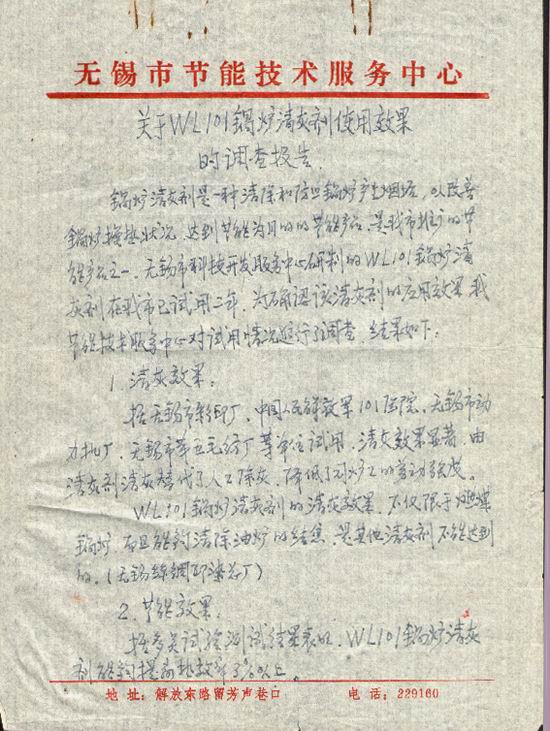 无锡市节能技术服务中心
关于WL101锅炉清灰剂使用效果
的调查报告
锅炉清灰剂是一种清除和防止锅炉产生烟垢，以改善
锅炉换热状况，达到节能为目的的节能产品，是我市推广的节
能产品之一。无锡市科技开发服务中心研制的WL101锅炉清
灰剂在我市已试用二年，为确认该清灰剂的应用效果，我
节能技术服务中心对试用情况进行了调查，结果如下：
1. 清灰效果：
据无锡市彩印厂、中国人民解放军101医院、无锡市动
力机厂、无锡市第五毛纺厂等单位试用，清灰效果显著，由
清灰剂清灰替代了人工除灰，降低了司炉工的劳动强度。
WL101锅炉清灰剂的清灰效果，不仅限于燃煤
锅炉，而且能够清除油炉的结焦，是其他清灰剂不能达到
的。（无锡丝绸印染总厂）
2. 节能效果：
据多点试验测试结果表明，WL101锅炉清灰
剂能够提高热效率3%以上。
地址：解放东路留芳声巷口 电话：229160